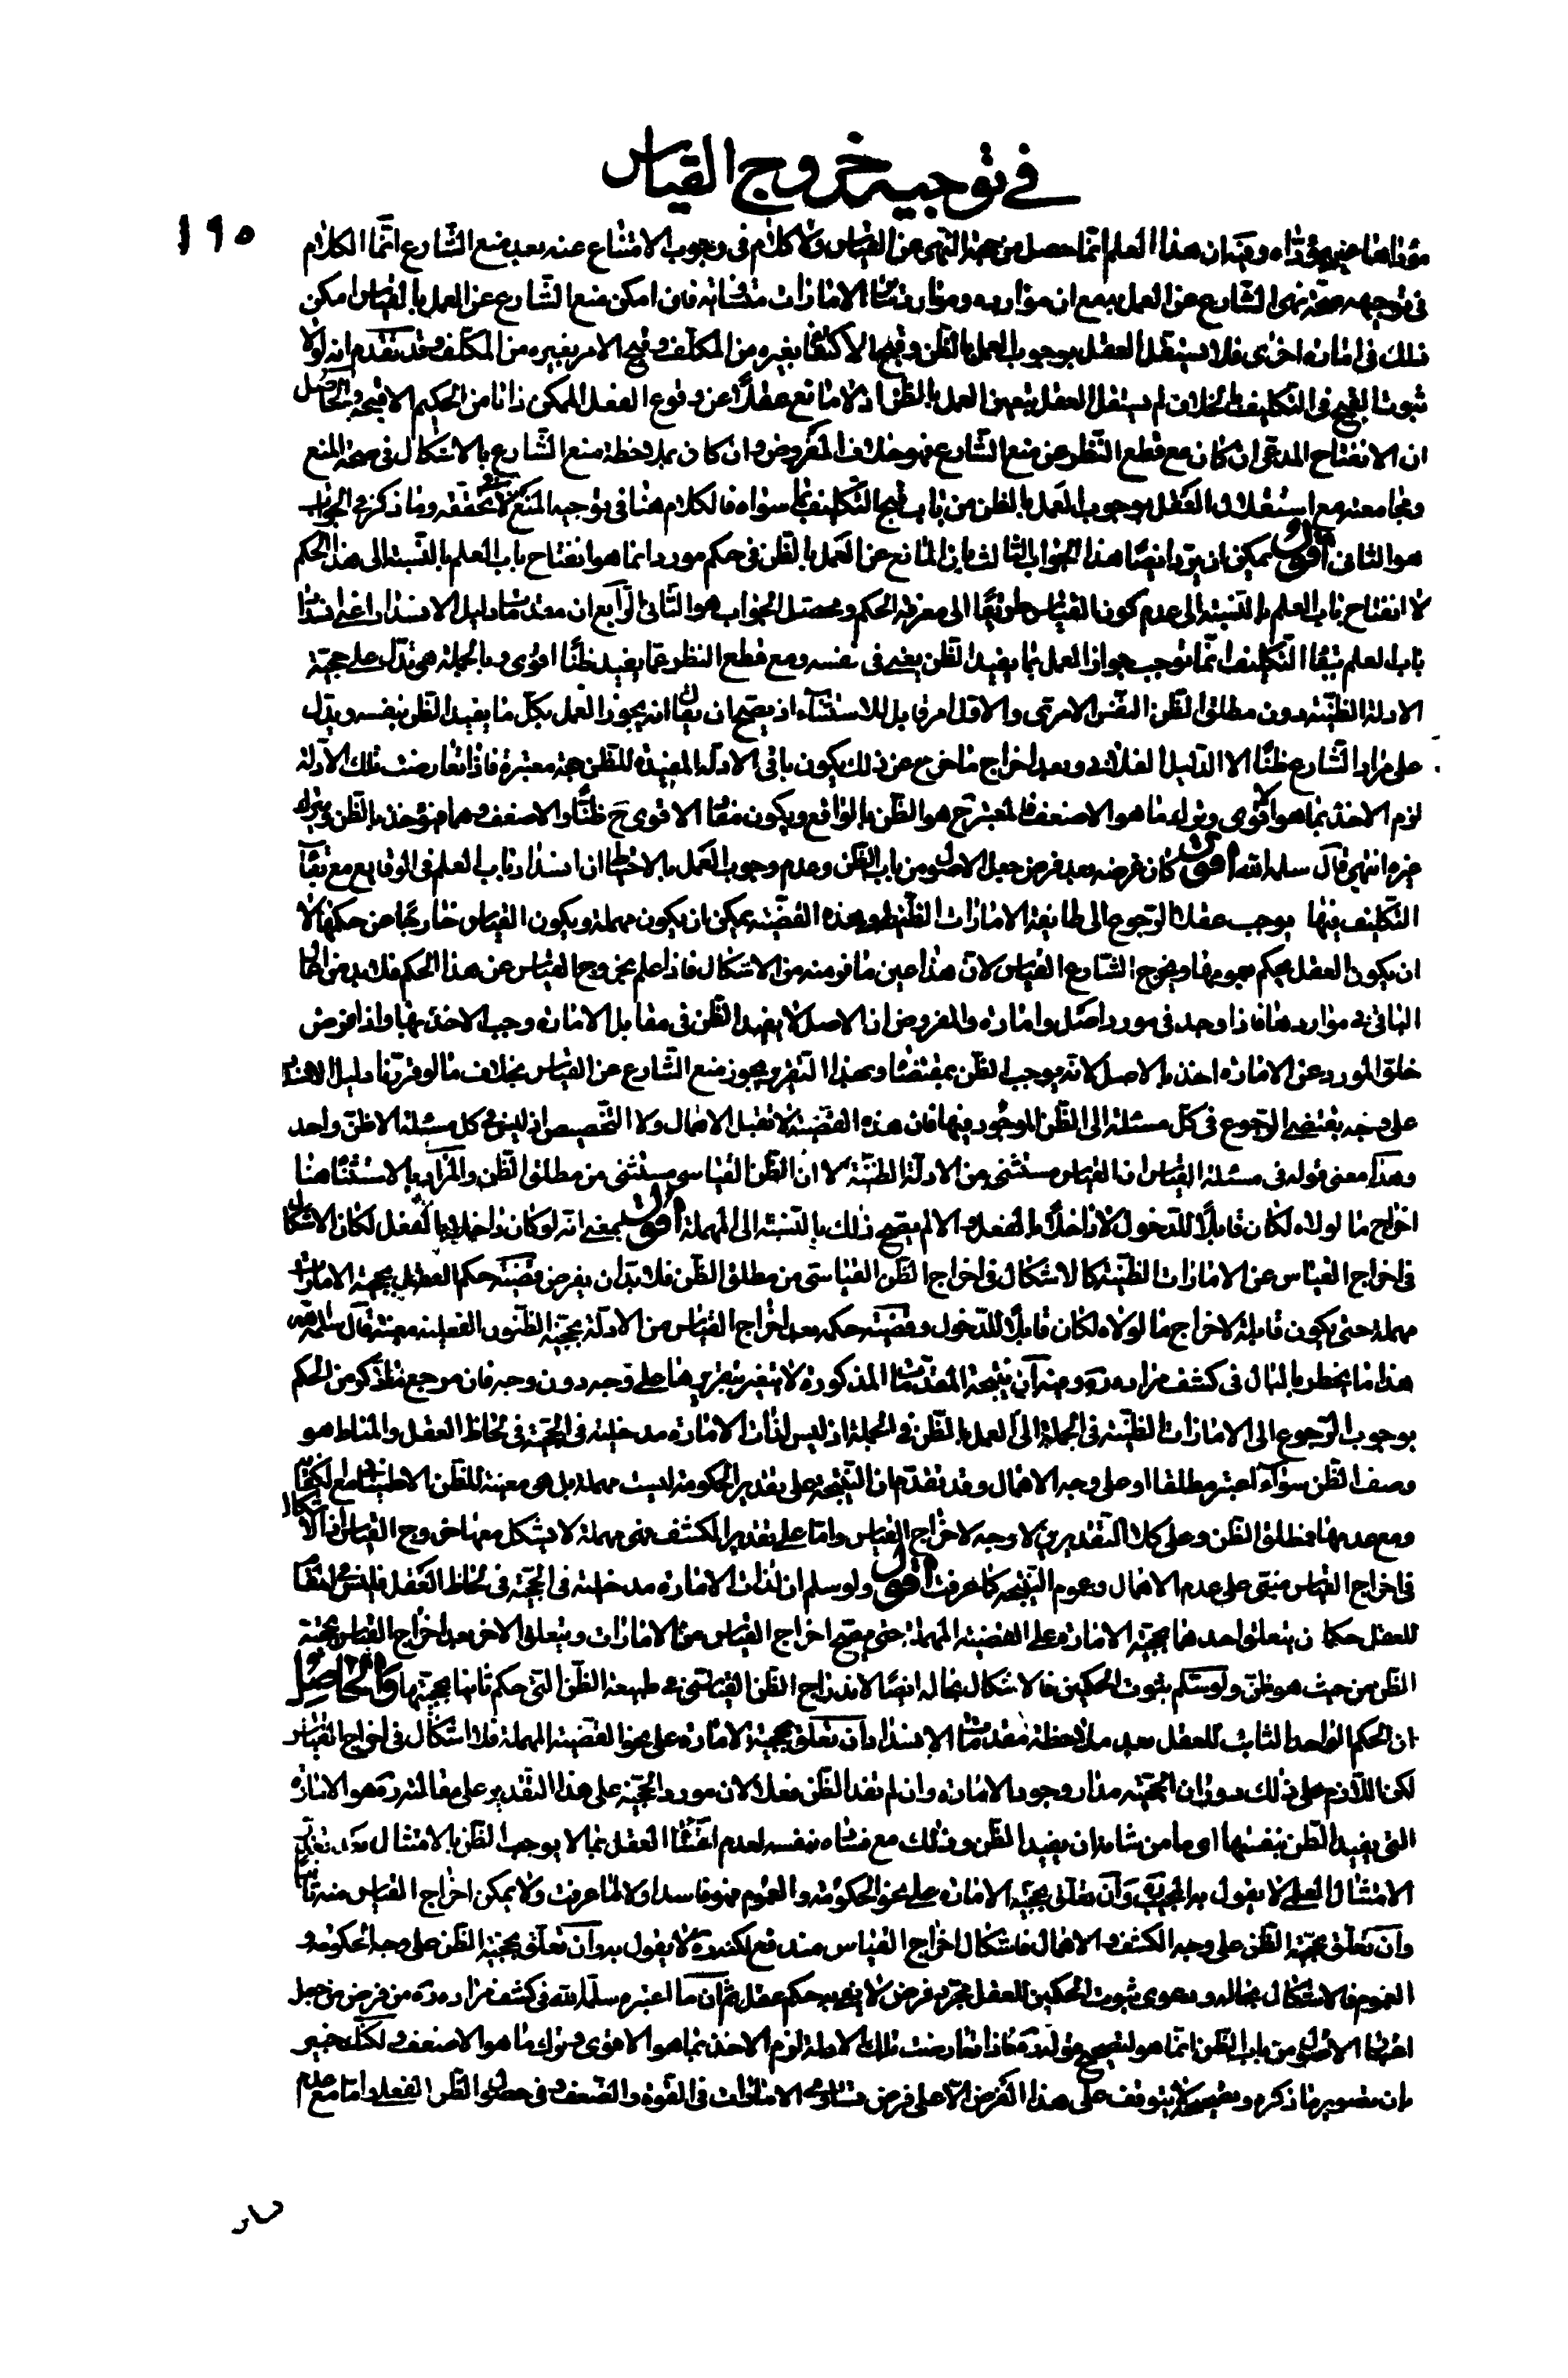 في توجيه خروج القياس
١٩٥
مؤداها غير مؤداه وفيه ان هذا العلم انّما حصل من جهة النّهي عن القياس ولا كلام في وجوب الامتناع عنه بعد منع الشّارع انّما الكلام
في توجيه صحّة نهي الشّارع عن العمل به مع ان موارده وموارد سائر الامارات متشابهة فان امكن منع الشّارع عن العمل بالقياس امكن
ذلك في امارة اخرى فلا يستقل العقل بوجوب العمل بالظّن وقبح الاكتفاء بغيره من المكلّف وقبح الامر بغيره من المكلّف وقد تقدم انه لولا
ثبوت القبح في التكليف بالخلاف لم يستقل العقل بتعيين العمل بالظّن اذ لا مانع عقلاً عن وقوع الفعل الممكن ذاتا من الحكيم الا قبحه والحاصل
ان الانفتاح المدعى ان كان مع قطع النّظر عن منع الشّارع فهو خلاف المفروض وان كان بملاحظة منع الشّارع فالاشكال في صحة المنع
ومجامعته مع استقلال العقل بوجوب العمل بالظن من باب قبح التّكليف بما سواه فالكلام هنا في توجيه المنع لا في تحققه وما ذكر في الجواب
هو الثاني أقول يمكن ان يردّ ايضًا هذا الجواب الثالث بان المانع عن العمل بالظّن في حكم مورد انما هو انفتاح باب العلم بالنّسبة الى هذا الحكم
لا انفتاح باب العلم بالنّسبة الى عدم كون القياس طريقًا الى معرفة الحكم ومحصّل الجواب هو الثّاني الرّابع ان مقدمات دليل الانسداد اعني انسداد
باب العلم مع بقاء التّكليف انّما توجب جواز العمل بما يفيد الظّن يعني في نفسه ومع قطع النظر عمّا يفيد ظنّا اقوى وبالجملة هي تدلّ على حجيّة
الادلة الظنّيّة دون مطلق الظّن النفس الامرى والاول امر قابل للاستثناء اذ يصح ان يقال انه يجوز العمل بكلّ ما يفيد الظّن بنفسه ويدل
على مراد الشّارع ظنًّا الا الدّليل الفلاني وبعد اخراج ما خرج عن ذلك يكون باقي الادلّة المفيدة للظّن حجة معتبرة فاذا تعارضت تلك الادلّة
لزم الاخذ بما هو الاقوى وترك ما هو الاضعف فالمعتبر ح هو الظّن بالواقع ويكون مفاد الاقوى ح ظنًّا والاضعف وهما فيؤخذ بالظّن ويترك
غيره انتهى قال سلمه الله أقول كان غرضه بعد فرض جعل الاصول من باب الظّن وعدم وجوب العمل بالاحتياط ان انسداد باب العلم في الوقايع مع بقاء
التّكليف فيها يوجب عقلا الرّجوع الى طائفة الامارات الظّنيّة وهذه القضيّة يمكن ان يكون مهملة ويكون القياس خارجًا عن حكمها لا
ان يكون العقل يحكم بعمومها ويخرج الشّارع القياس لان هذا عين ما فر منه من الاشكال فاذا علم بخروج القياس عن هذا الحكم فلا بد من اعمال
الباقي في مواردها فاذا وجد في مورد اصل وامارة والمفروض ان الاصل لا يفيد الظّن في مقابل الامارة وجب الاخذ بها واذا فرض
خلوّ المورد عن الامارة اخذ بالاصل لانه يوجب الظن بمقتضاه وبهذا التقرير يجوز منع الشّارع عن القياس بخلاف ما لو قررنا دليل الانسداد
على وجه يقتضي الرّجوع في كلّ مسئلة الى الظّن الموجود فيها فان هذه القضيّة لا تقبل الاهمال ولا التّخصيص اذ ليس في كل مسئلة الا ظنّ واحد
وهذا معنى قوله في مسئلة القياس ان القياس مستثنى من الادلّة الظنّيّة لا ان الظّن القياسي مستثنى من مطلق الظّن والمراد بالاستثناء هنا
اخراج ما لولاه لكان قابلًا للدخول لا داخلا بالفعل والا لم يصح ذلك بالنّسبة الى المهملة أقول بمعنى انه لو كان داخلا بالفعل لكان الاشكال
في اخراج القياس عن الامارات الظّنيّة كالاشكال في اخراج الظّن القياسيّ من مطلق الظّن فلا بدّ ان يفرض قضيّة حكم العقل بحجية الامارات
مهملة حتى يكون قابلة لاخراج ما لولاه لكان قابلًا للدّخول وقضيّة حكمه بعد اخراج القياس من الادلّة بحجيّة الظنّون الفعلية معينة قال سلمه الله
هذا ما يخطر بالبال في كشف مراده ره وفيه ان نتيجة المقدّمات المذكورة لا يتغير بتقريرها على وجه دون وجه فان مرجع ما ذكر من الحكم
بوجوب الرّجوع الى الامارات الظنّية في الجملة الى العمل بالظّن في الجملة اذ ليس لذات الامارة مدخلية في الحجيّة في لحاظ العقل والمناط هو
وصف الظّن سواء اعتبر مطلقا او على وجه الاهمال وقد تقدّم ان النّتيجة على تقدير الحكومة ليست مهملة بل هي معينة للظّن الاطميناني مع الكفاية
ومع عدمها فمطلق الظّن وعلى كلا التّقديرين لا وجه لاخراج القياس وامّا على تقدير الكشف فهي مهملة لا يشكل معها خروج القياس اذ الاشكال
في اخراج القياس مبنى على عدم الاهمال وعموم النّتيجة كما عرفت أقول ولو سلم ان لذات الامارة مدخلية في الحجيّة في لحاظ العقل فليس في المقام
للعقل حكمان يتعلق احدهما بحجيّة الامارة على القضيّة المهملة حتى يصح اخراج القياس من الامارات ويتعلق الاخر بعد اخراج القياس بحجيّة
الظّن من حيث هو ظنّ ولو سلّم ثبوت الحكمين فالاشكال بحاله ايضًا لاندراج الظّن القياسيّ في طبيعة الظّن التي حكم ثانيا بحجيّتها والحاصل
ان الحكم الواحد الثابت للعقل بعد ملاحظة مقدّمات الانسداد ان تعلق بحجيّة الامارة على نحو القضيّة المهملة فلا اشكال في اخراج القياس
لكن اللّازم على ذلك دوران الحجّيّة مدار وجود الامارة وان لم تفد الظّن فعلا لان مورد الحجيّة على هذا التقدير على مقالته ره هو الامارة
التي يفيد الظّن بنفسها او ما من شانه ان يفيد الظّن وذلك مع فساده بنفسه لعدم اكتفاء العقل بما لا يوجب الظّن بالامتثال بعد تعذر
الامتثال العلمي لا يقول به المجيب وان تعلّق بحجيّة الامارة على نحو الحكومة والعموم فهو فاسد اولا لما عرفت ولا يمكن اخراج القياس منه ثانيًا
وان تعلّق بحجيّة الظّن على وجه الكشف والاهمال فاشكال اخراج القياس مندفع لكنه ره لا يقول به وان تعلّق بحجيّة الظّن على وجه الحكومة و
العموم فالاشكال بحاله ودعوى ثبوت الحكمين للعقل مجرّد فرض لا يفيده حكم عقل ثم ان ما اعتبره سلّمه الله في كشف مراده ره من فرض من جعل
اعتبار الاصول من باب الظّن انّما هو لتصحيح قوله ره فاذا تعارضت تلك الادلة لزم الاخذ بما هو الاقوى وترك ما هو الاضعف ولكنّك خبير
بان تصوير ما ذكره وتصحيحه لا يتوقف على هذا الفرض الّا على فرض تساوي الامارات في القوة والضّعف في حصول الظّن الفعلي واما مع عدم